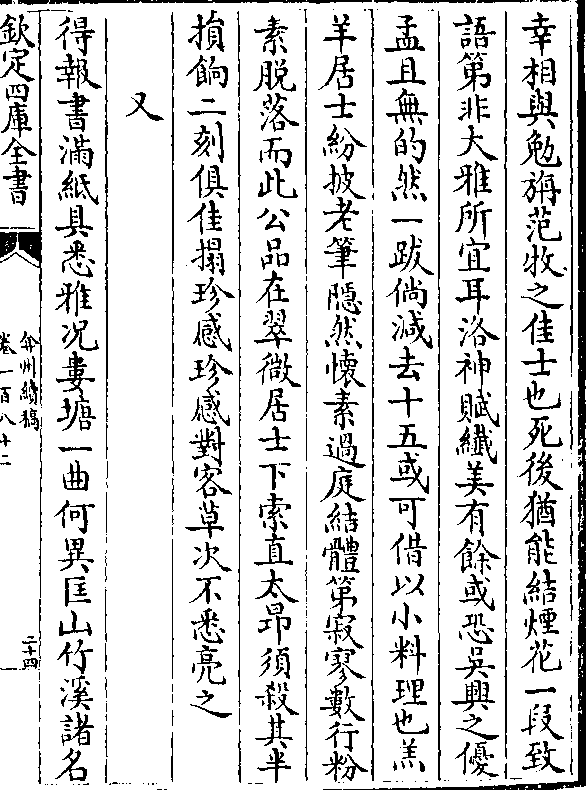 幸相與勉旃范牧之佳士也死後猶能結煙花一段致
語第非大雅所宜耳洛神賦纖美有餘或恐吳興之優
孟且無的然一跋倘減去十五或可借以小料理也羔
羊居士紛披老筆隱然懷素過庭結體第寂寥數行粉
素脫落而此公品在翠微居士下索直太昂須殺其半
損餉二刻俱佳搨珍感珍感對客草次不悉亮之
又
得報書滿紙具悉雅况婁塘一曲何異匡山竹溪諸名
欽定四庫全書
弇州續稿
卷一百八十二
二十四